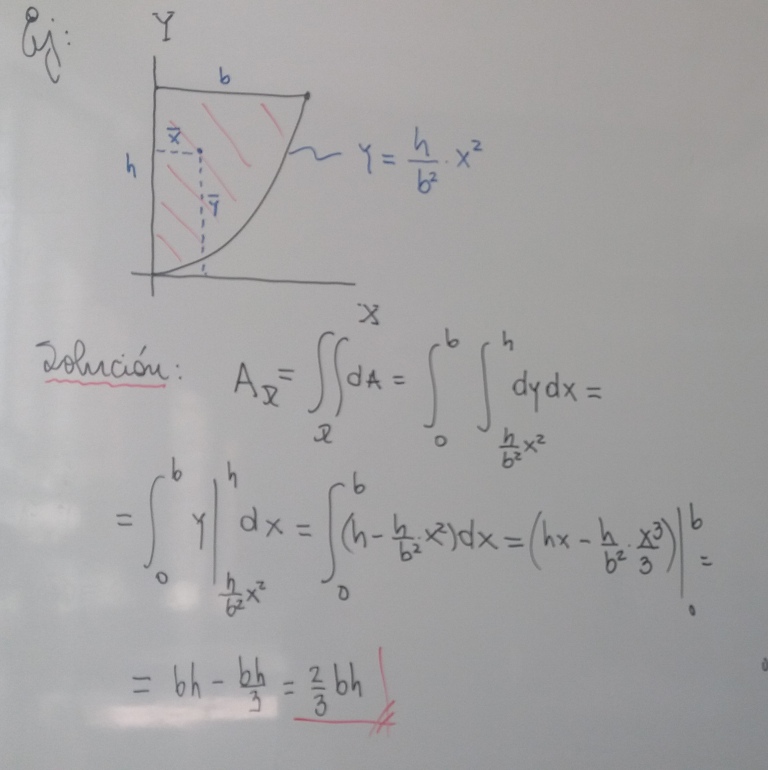 Ej:
Y
b
x̄
h
ȳ
Y = h/b² · x²
X
Solución: A_R = ∬_R dA = ∫₀^b ∫_{h/b² x²}^h dydx =
= ∫₀^b y |_{h/b² x²}^h dx = ∫₀^b (h - h/b² · x²)dx = (hx - h/b² · x³/3)|₀^b =
= bh - bh/3 = 2/3 bh